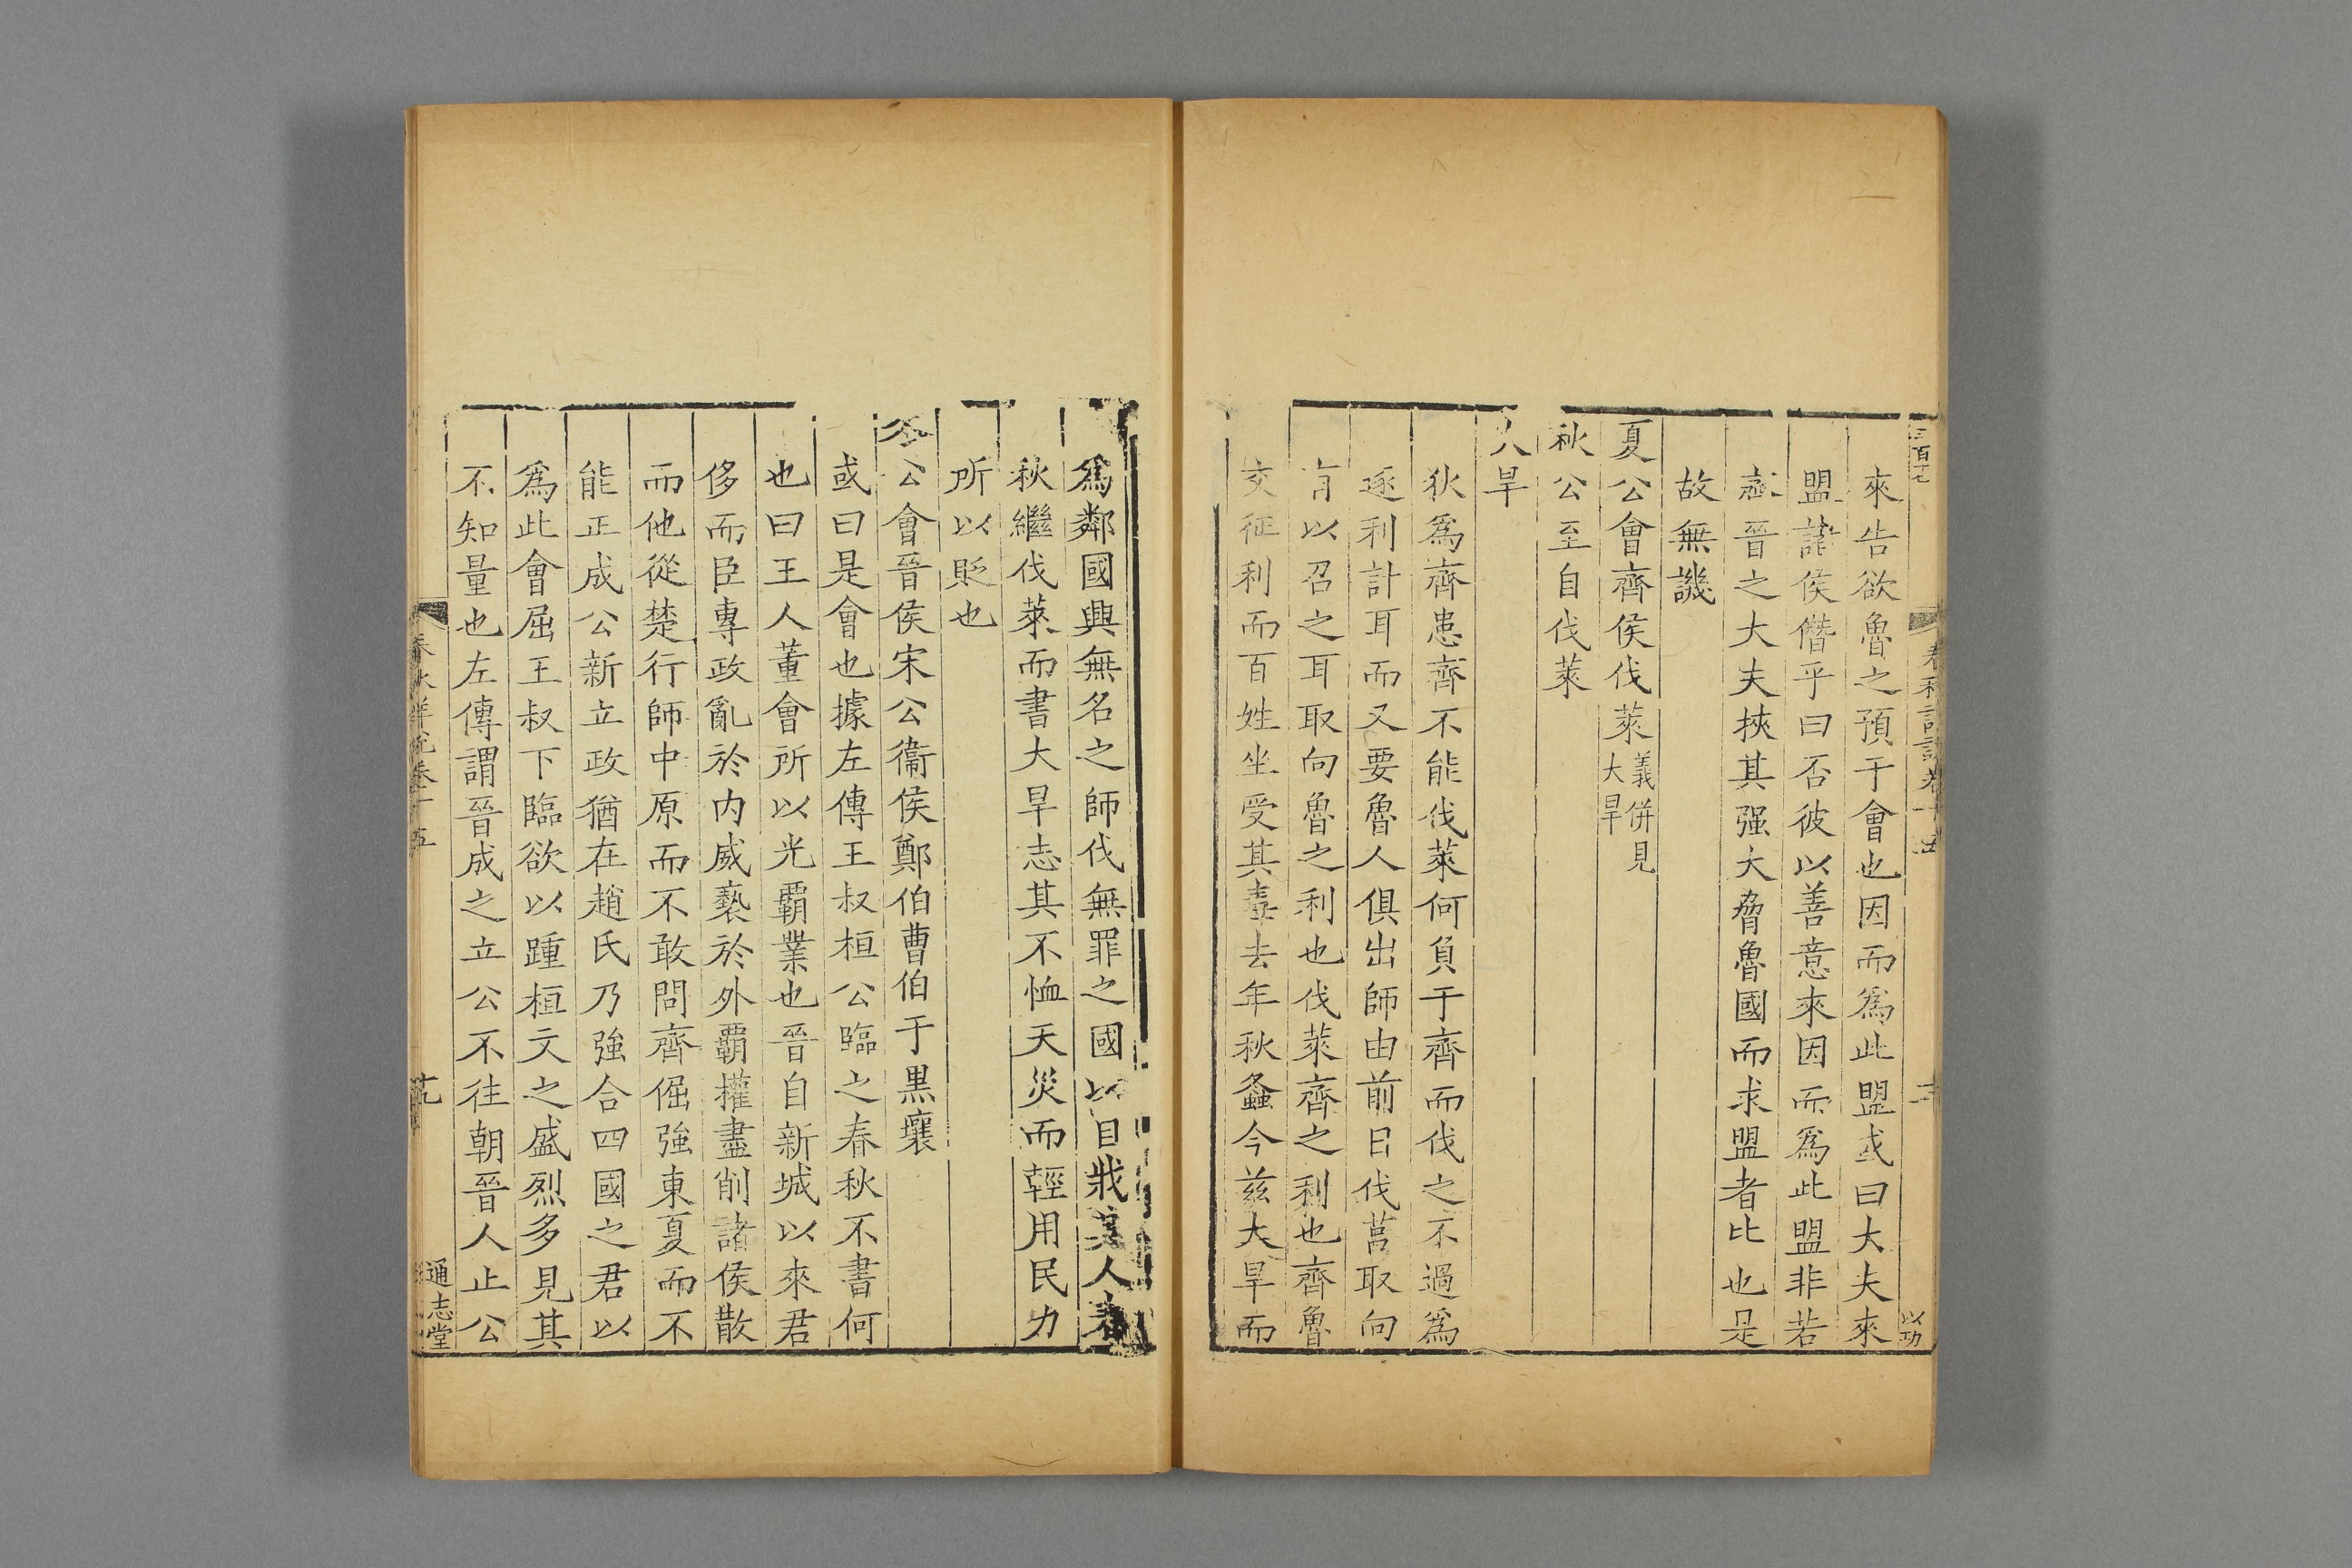 來告欲魯之預于會也因而爲此盟或曰大夫來
盟諸侯僭乎曰否彼以善意來因而爲此盟非若
晉之大夫挾其强大脅魯國而求盟者比也是
故無譏
夏公會齊侯伐萊義併見大旱
秋公至自伐萊
大旱
狄爲齊患齊不能伐萊何負于齊而伐之不過爲
逐利計耳而又要魯人俱出師由前日伐莒取向
有以召之耳取向魯之利也伐萊齊之利也齊魯
交征利而百姓坐受其毒去年秋螽今兹大旱而
爲鄰國興無名之師伐無罪之國以自戕人春
秋繼伐萊而書大旱志其不恤天災而輕用民力
所以貶也
冬公會晉侯宋公衞侯鄭伯曹伯于黒壤
或曰是會也據左傳王叔桓公臨之春秋不書何
也曰王人董會所以光覇業也晉自新城以來君
侈而臣專政亂於内威褻於外覇權盡削諸侯散
而他從楚行師中原而不敢問齊倔強東夏而不
能正成公新立政猶在趙氏乃強合四國之君以
爲此會屈王叔下臨欲以踵桓文之盛烈多見其
不知量也左傳謂晉成之立公不往朝晉人止公
通志堂